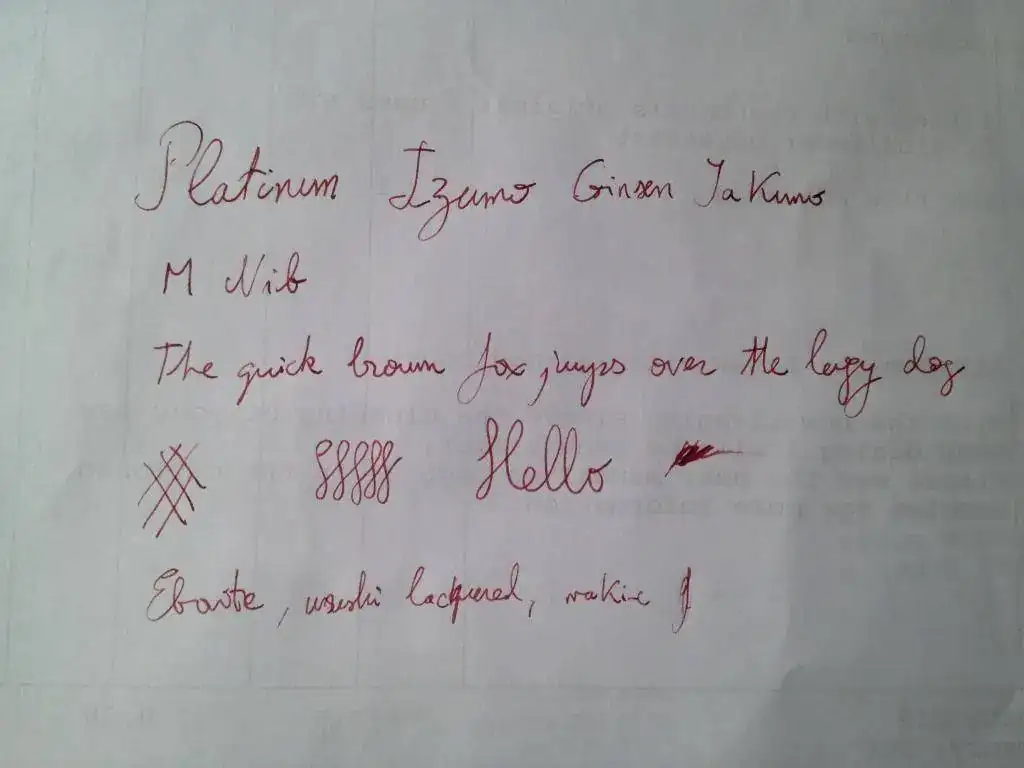 Platinum Izumo Ginsen Yakumo
M Nib
The quick brown fox jumps over the lazy dog
Hello
Ebonite, urushi lacquered, makie